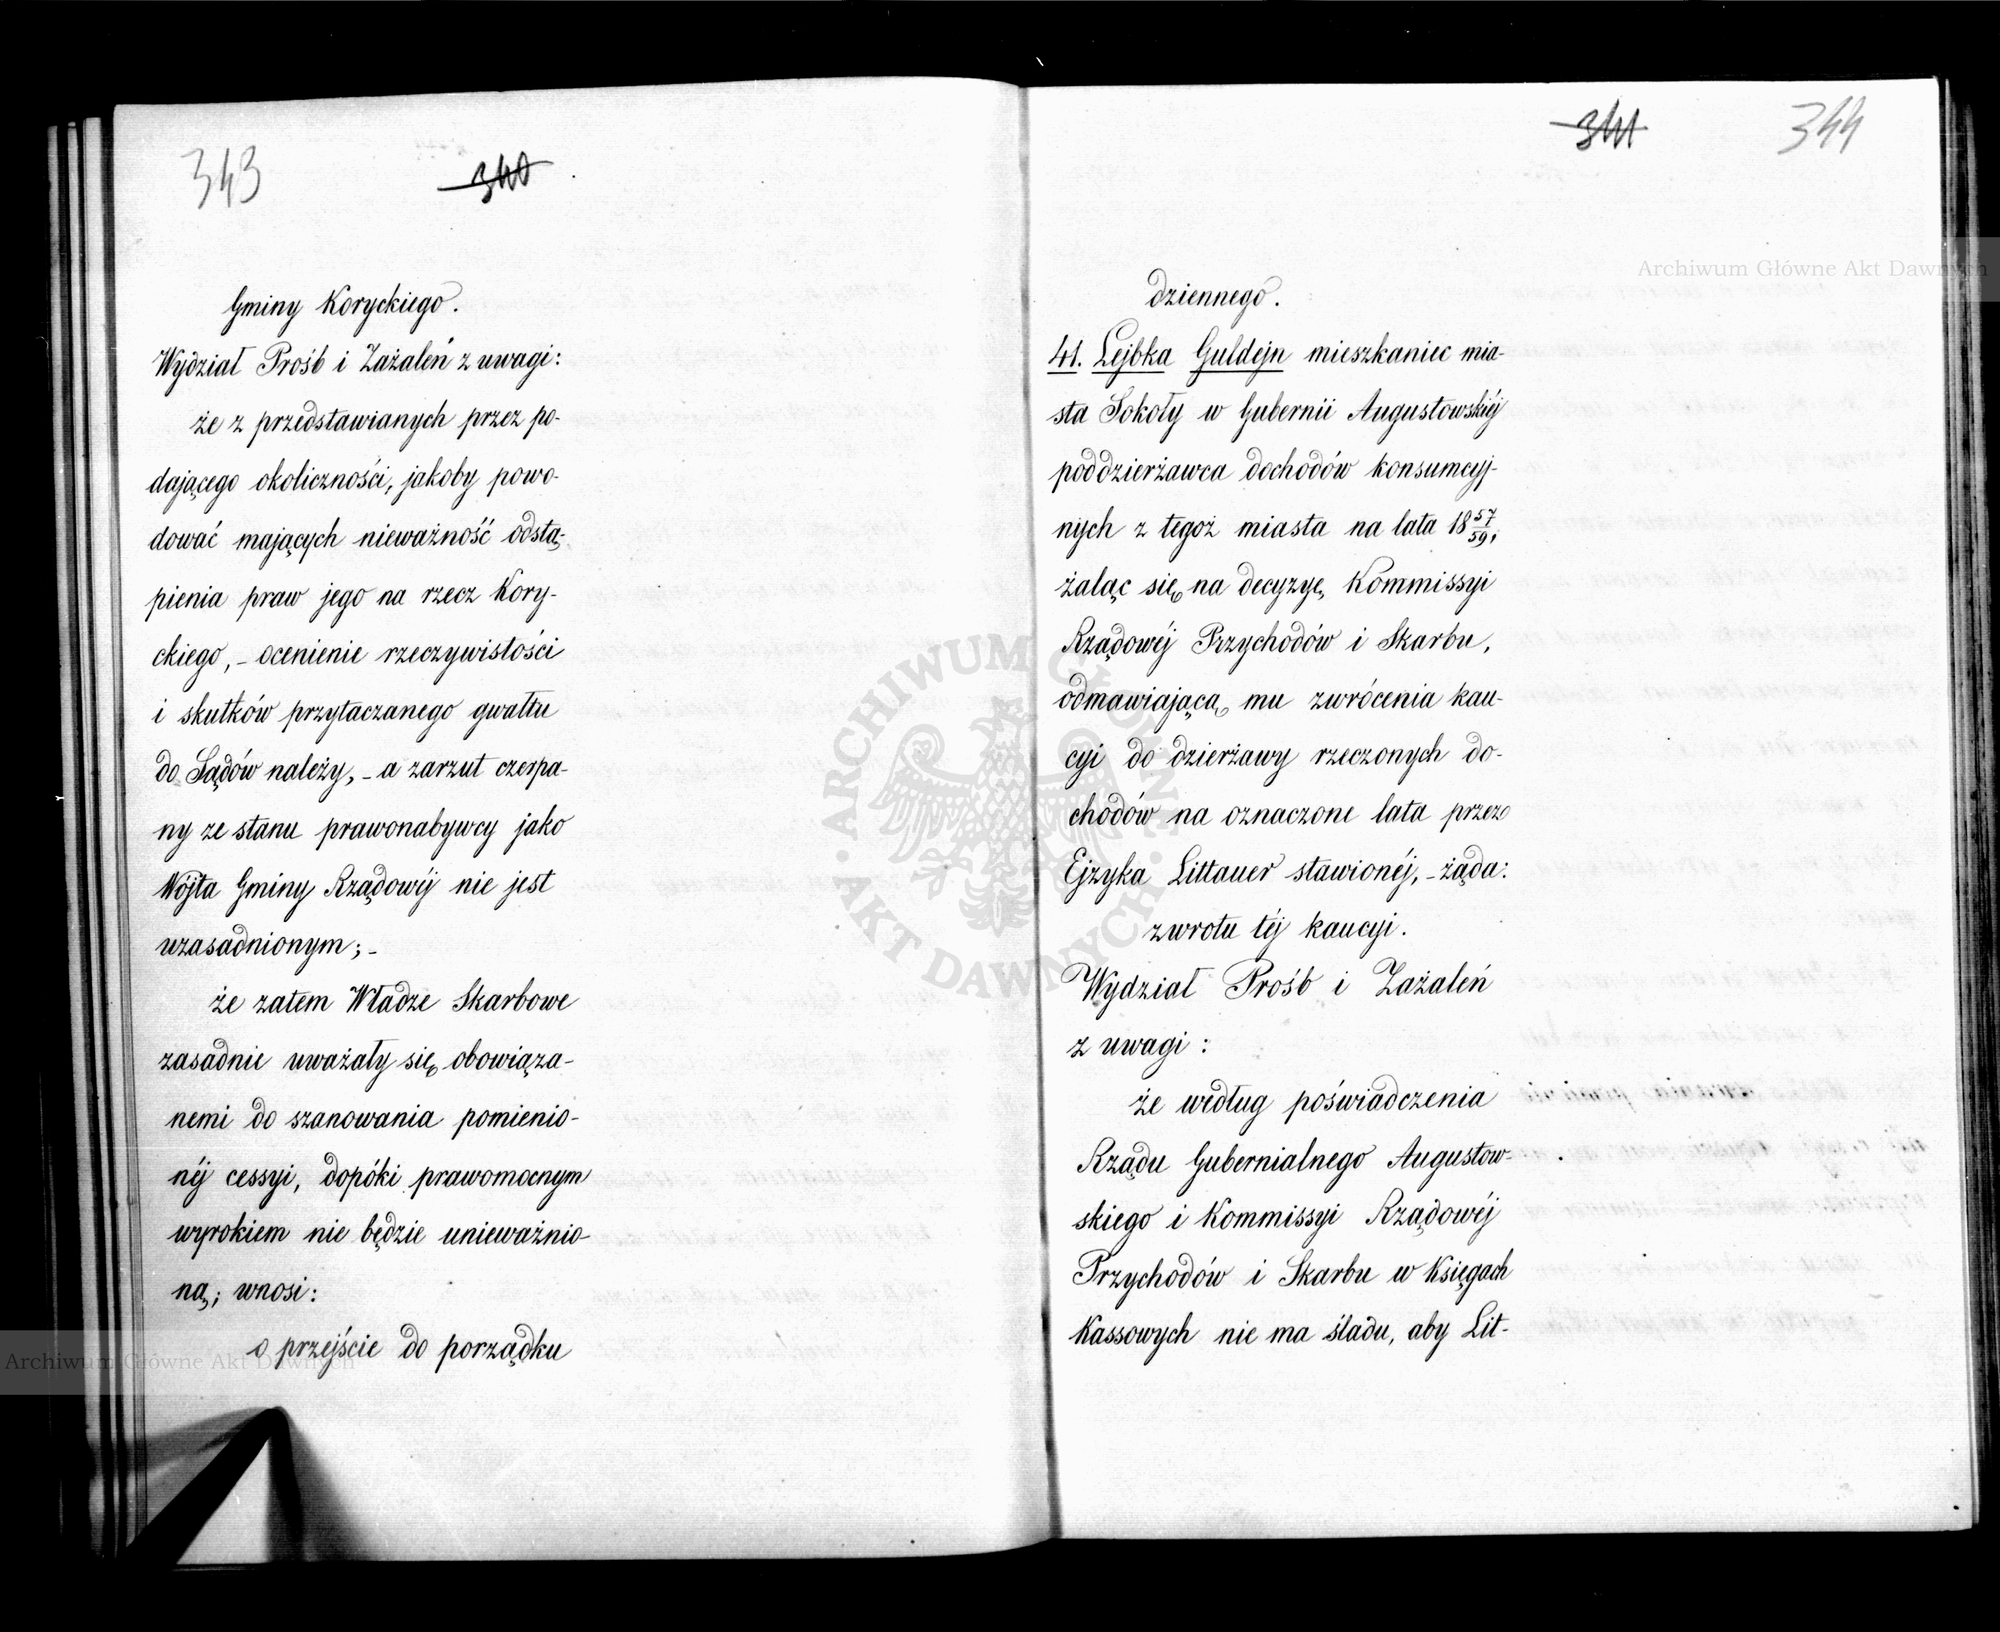 343 340
Gminy Koryckiego.
Wydział Prośb i Zażaleń z uwagi:
że z przedstawianych przez po-
dającego okoliczności, jakoby powo-
dować mających nieważność odstą-
pienia praw jego na rzecz Kory-
ckiego, - ocenienie rzeczywistości
i skutków przytaczanego gwałtu
do Sądów należy, - a zarzut czerpa-
ny ze stanu prawonabywcy jako
Wójta Gminy Rządowéj nie jest
uzasadnionym; -
że zatem Władze Skarbowe
zasadnie uważały się obowiąza-
nemi do szanowania pomienio-
néj cessyi, dopóki prawomocnym
wyrokiem nie będzie unieważnio-
ną; wnosi:
o przejście do porządku
341 344
dziennego.
41. Lejbka Guldejn mieszkaniec mia-
sta Sokoły w Gubernii Augustowskiéj
poddzierżawca dochodów konsumcyj-
nych z tegoż miasta na lata 18 57/59,
żaląc się na decyzyę Kommissyi
Rządowéj Przychodów i Skarbu,
odmawiającą mu zwrócenia kau-
cyi do dzierżawy rzeczonych do-
chodów na oznaczone lata przez
Ejzyka Littauer stawionéj, - żąda:
zwrotu téj kaucyi.
Wydział Prośb i Zażaleń
z uwagi:
że według poświadczenia
Rządu Gubernialnego Augustow-
skiego i Kommissyi Rządowéj
Przychodów i Skarbu w Księgach
Kassowych nie ma śladu, aby Lit-
Archiwum Główne Akt Dawnych
Archiwum Główne Akt Dawnych
ARCHIWUM GŁÓWNE AKT DAWNYCH